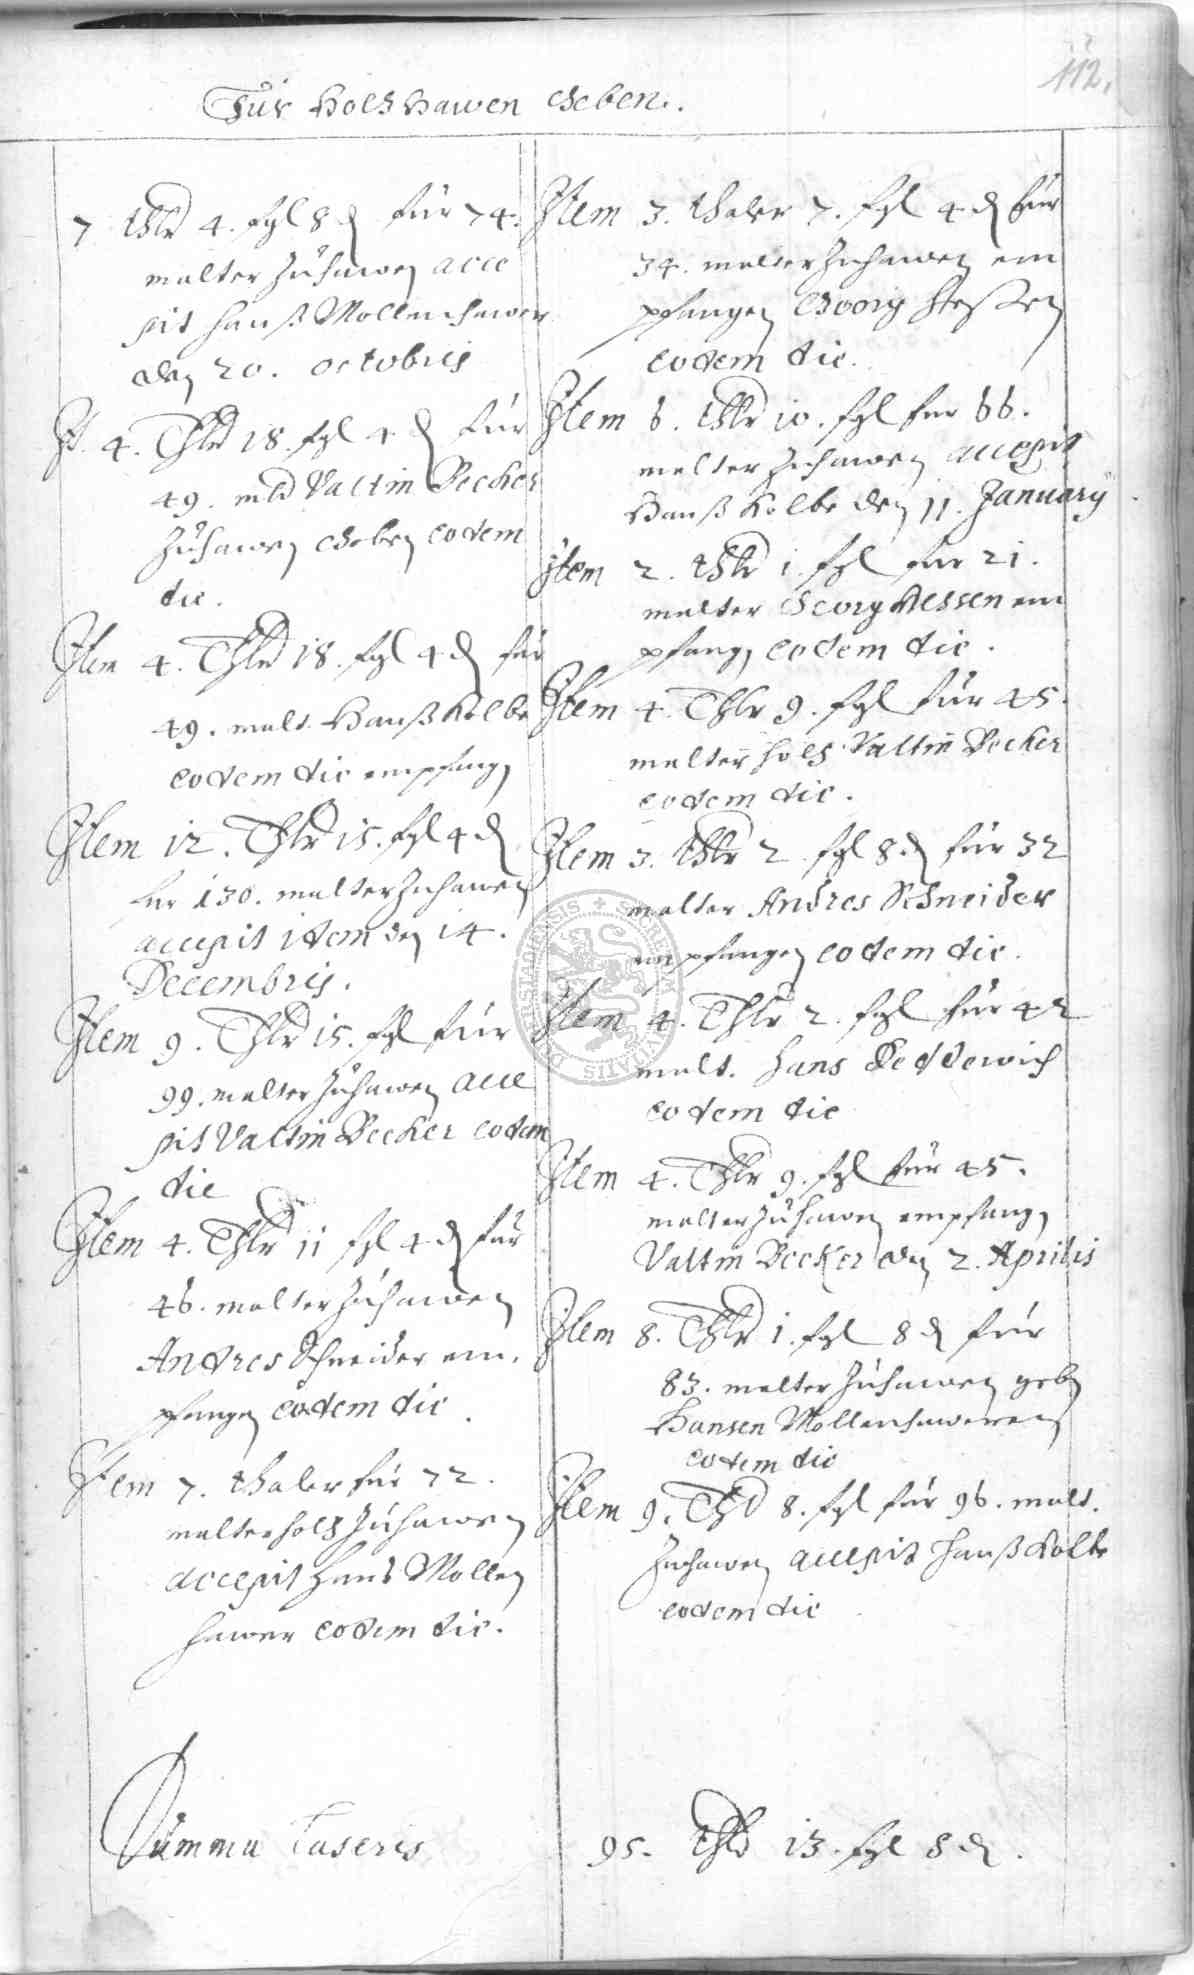 112.
Für Holtz Hawen Geben.
7 thlr 4. sgl 8 ₰ für 74.
malter Zuhawen acce
pit Hanß Mollenhawer
den 20. octobris
It. 4. Thlr 18. sgl 4 ₰ für
49. mlr Valtin Becker
Zuhawen Geben eodem
die.
Item 4. Thlr 18. sgl 4 ₰ für
49. malt. Hanß Kolbe
eodem die empfang
Item 12. Thlr 15. sgl 4 ₰
für 130. malter Zuhawen
accepit idem den 14.
Decembris.
Item 9. Thlr 15. sgl für
99. malter Zuhawen acce
pit Valtin Becker eodem
die
Item 4. Thlr 11 sgl 4 ₰ für
46. malter Zuhawen
Andres Schneider em,
pfangen eodem die.
Item 7. thaler für 72.
malter holtz Zuhawen
accepit Hans Mollen
hawer eodem die.
Item 3. thaler 7. sgl 4 ₰ für
34. malter Zuhawen em
pfangen Georg Hessen
eodem die.
Item 6. thlr 10. sgl für 66.
malter Zuhawen accepit
Hanß Kolbe den 11. January.
Item 2. thlr 1. sgl für 21.
malter Georg Hessen em
pfang eodem die.
Item 4. Thlr 9. sgl für 45.
malter holtz Valtin Becker
eodem die.
Item 3. thlr 2 sgl 8 ₰ für 32
malter Andres Schneider
empfangen eodem die.
Item 4. Thlr 2. sgl für 42
malt. Hans Deddewich
eodem die
Item 4. Thlr 9. sgl für 45.
malter Zuhawen empfang
Valtin Becker den 2. Aprilis
Item 8. Thlr 1. sgl 8 ₰ für
83. malter Zuhawen geben
Hansen Mollenhaweren
eodem die
Item 9. Thlr 8. sgl für 96. malt.
Zuhawen accepit Hanß Kolbe
eodem die
Summa Laseris 95. thlr 13. sgl 8 ₰.